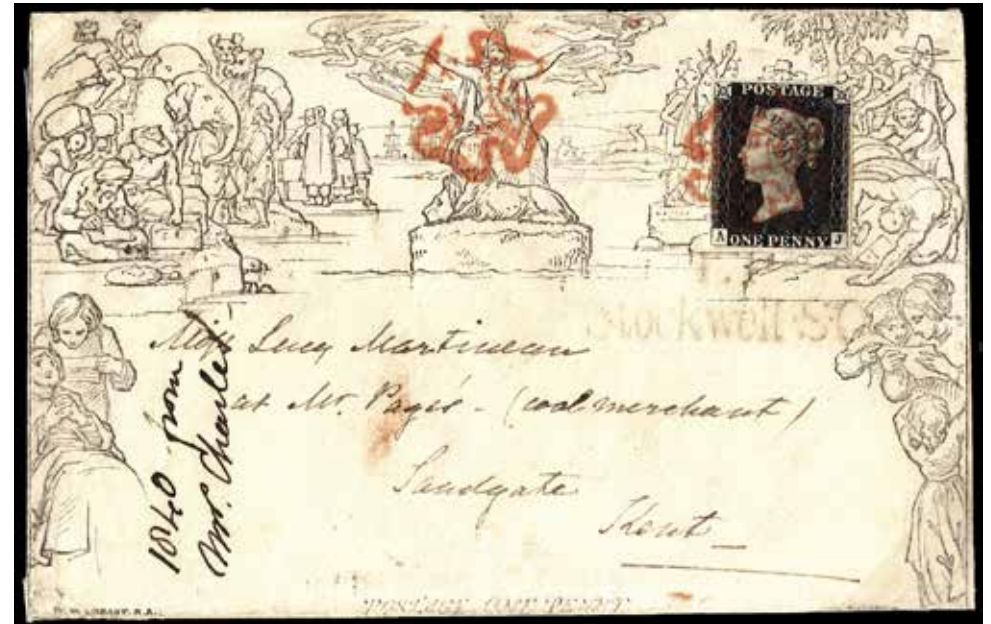 POSTAGE
A J
ONE PENNY
Stockwell S.O
Miss Lucy Martineau
at Mr. Page's - (coal merchant)
Sandgate
Kent
1840 from
Mrs. Charles
W. MULREADY. R.A.
POSTAGE ONE PENNY.